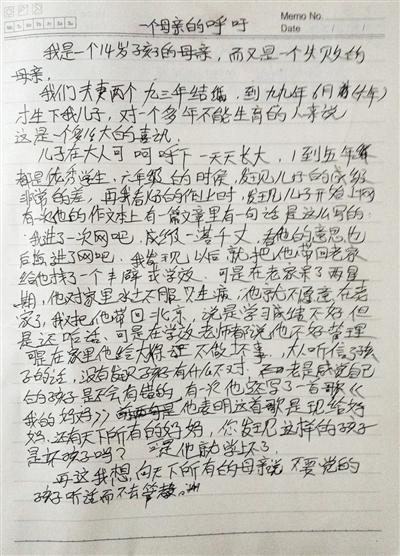 一个母亲的呼吁
Memo No.
Date / /
我是一个14岁孩子的母亲，而又是一个失败的
母亲，
我们夫妻两个九三年结婚，到九九年6月
才生下我儿子，对一个多年不能生育的人来说
这是一个多么大的喜讯，
儿子在大人可呵呼下一天天长大，1到五年级
都是优秀学生，六年级的时候，发现儿子的成绩
非常的差，再我看他的作业时，发现儿子开始上网
有次他的作文本上有一篇文章里有一句话是这么写的：
我进了一次网吧，成绩一落千丈，看他的意思也
后悔进了网吧，我发现以后就把他带回老家
给他找了一个学校，可是在老家呆了两星
期，他对家里水土不服只生病，他就不愿意在老
家了，我把他带回北京，说是学习成绩不好但
是还，可是在学校老师都说他不好管理
可是在家里他给大人不做坏事，大人听信了孩
子的话，没有发现孩子有什么不对，老是感觉自己
的孩子是不会有错的，有次他还写了一首歌《
我的妈妈》他表明这首歌是现给妈
妈，还有天下所有的妈妈，你发现这样的孩子
是坏孩子吗？是他就学坏了，
再这我想向天下所有的母亲说不要觉的
孩子听话而不去管教。